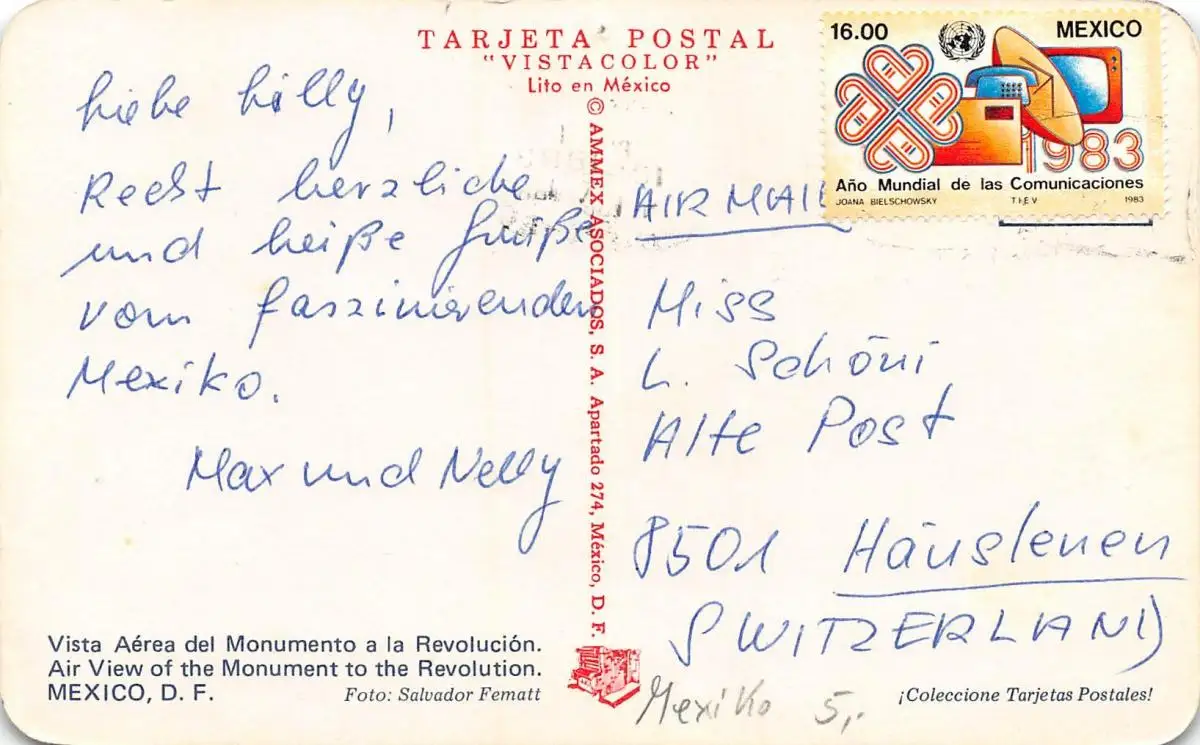 TARJETA POSTAL
"VISTACOLOR"
Lito en México
© AMMEX ASOCIADOS, S. A. Apartado 274, México, D. F.
Liebe Lilly,
Recht herzliche
und heiße Grüße
vom faszinierenden
Mexiko.
Max und Nelly
Vista Aérea del Monumento a la Revolución.
Air View of the Monument to the Revolution.
MEXICO, D. F.
Foto: Salvador Fematt
16.00
MEXICO
1983
Año Mundial de las Comunicaciones
JOANA BIELSCHOWSKY T.I.E.V. 1983
AIR MAIL
Miss
L. Schöni
Alte Post
8501 Häuslenen
SWITZERLAND
Mexiko 5,-
¡Coleccione Tarjetas Postales!